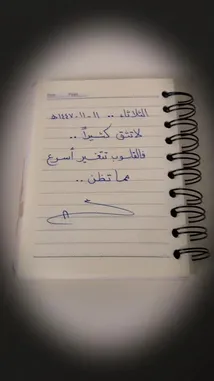 الثلاثاء .. ١١-١١-١٤٤٧هـ
لا تثق كثيراً ..
فالقلوب تتغير أسرع
مما تظن ..